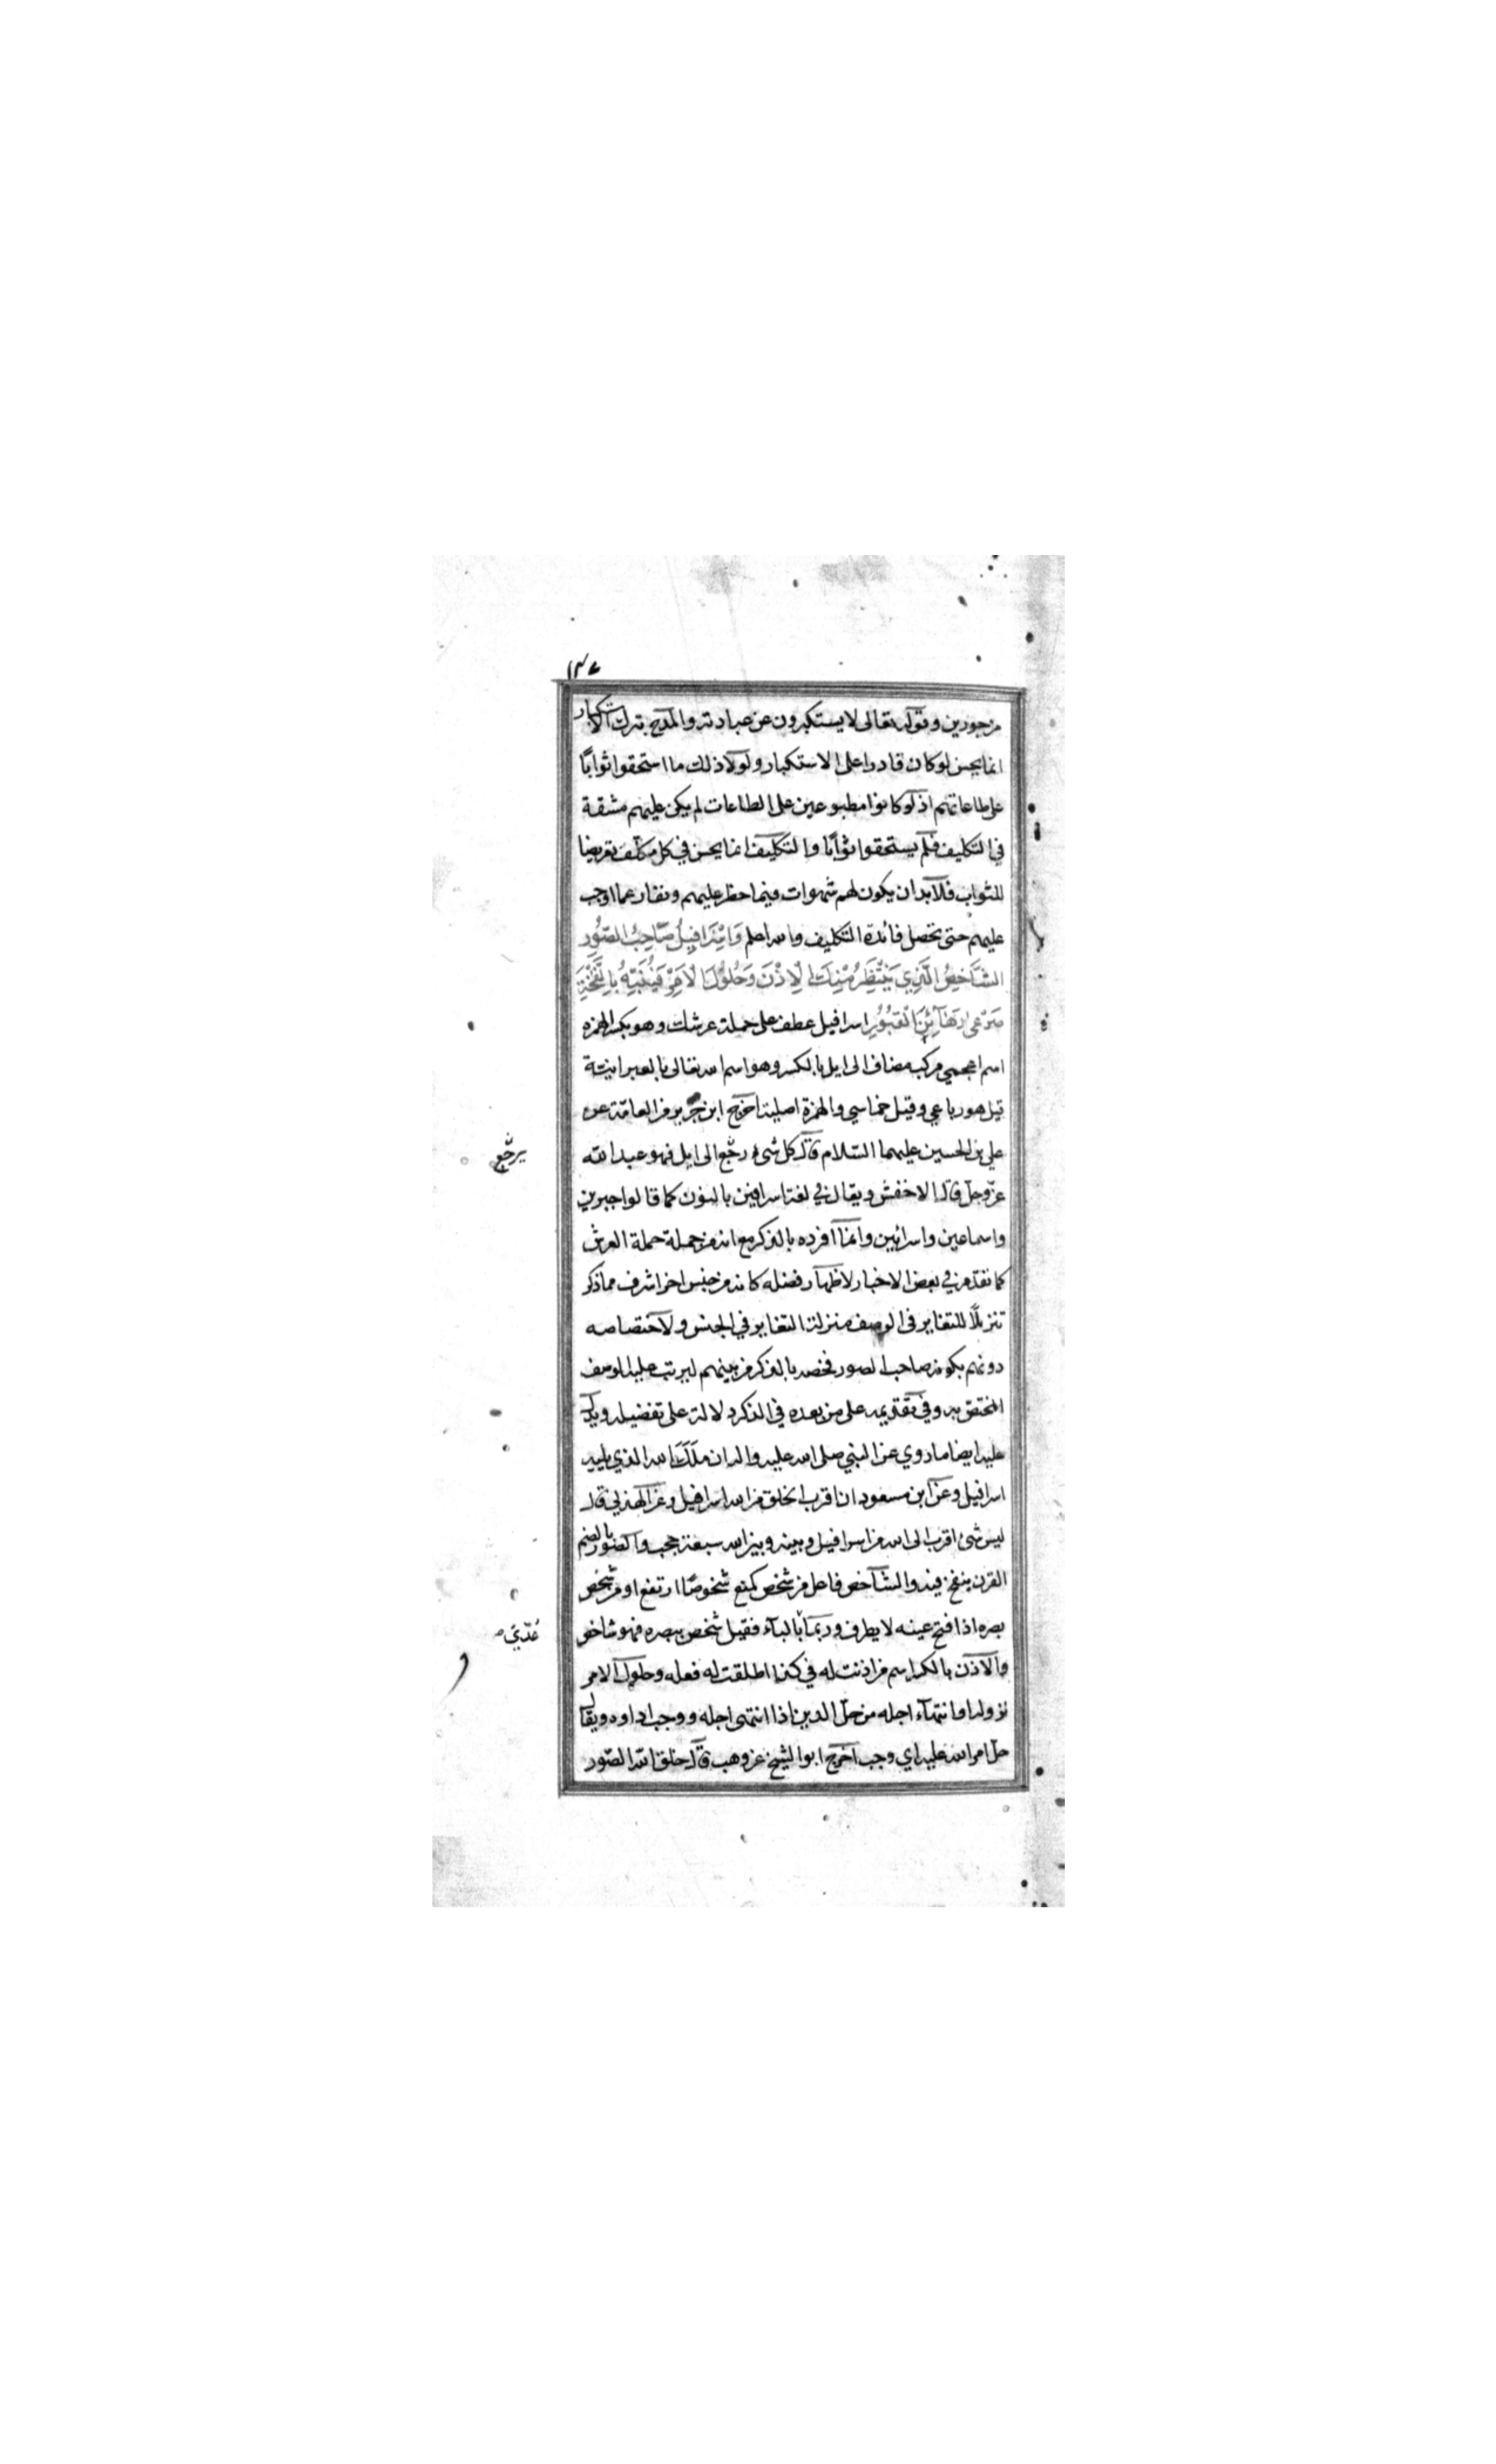 ١٣٧
مزجورين وقوله تعالى لا يستكبرون عن عبادته والمدح بترك الاستكبار
انما يحسن لو كان قادرا على الاستكبار ولولا ذلك ما استحقوا ثوابًا
على طاعاتهم اذ لو كانوا مطبوعين على الطاعات لم يكن عليهم مشقة
في التكليف فلم يستحقوا ثوابًا والتكليف انما يحسن في كل مكلف تعريضا
للثواب فلا بد ان يكون لهم شهوات فيما حظر عليهم ونفار عما اوجب
عليهم حتى تحصل فائدة التكليف والله اعلم وَاِسْرَافِيلُ صَاحِبُ الصُّورِ
الشَّاخِصُ الَّذِي يَنْتَظِرُ مِنْكَ الْاِذْنَ وَحُلُولَ الْاَمْرِ فَيُنَبِّهُ بِالنَّفْخَةِ
صَرْعى رَهَائِنَ الْقُبُورِ اسرافيل عطف على حملة عرشك وهو بكسر الهمزه
اسم اعجمي مركب مضاف الى ايل بالكسر وهو اسم الله تعالى بالعبرانيتة
قيل هو رباعي وقيل خماسي والهمزة اصلية اخرج ابن جرير من العامّة عن
علي بن الحسين عليهما السّلام قال كل شئ رجّع الى ايل فهو عبد الله
يرجّع
عزّ وجلّ قال الاخفش ويقال في لغة اسرافين بالنون كما قالوا جبرين
واسماعين واسرائين وانما افرده بالذكر مع انه من جملة حملة العرش
كما تقدّم في بعض الاخبار لاظهار فضله كانه من جنس اخر اشرف مما ذكر
تنزيلًا للتغاير في الوصف منزلة التغاير في الجنس ولاختصاصه
دونهم بكونه صاحب الصور فخصه بالذكر من بينهم ليرتب عليه الوصف
المختصّ به وفي تقديمه على من بعده في الذكر دلالة على تفضيله ويدل
عليه ايضا ما روي عن النبي صلى الله عليه واله ان ملك الله الذي يليه
اسرافيل وعن ابن مسعود ان اقرب الخلق من الله اسرافيل وعن الهذلي قال
ليس شئ اقرب الى الله من اسرافيل وبينه وبين الله سبعة حجب والصور بالضم
القرن ينفخ فيه والشاخص فاعل من شخص كمنع شخوصًا ارتفع او من شخص
بصره اذا فتح عينه لا يطرف وربما بالباء فقيل شخص ببصره فهو شاخص
عُدّي
والاذن بالكسر اسم من اذنت له في كذا اطلقت له فعله وحلول الامر
نزوله او انتهاء اجله من حلّ الدين اذا انتهى اجله ووجب اداوه ويقال
حلّ امر الله عليه اي وجب اخرج ابوا الشيخ عن وهب قال خلق الله الصّور